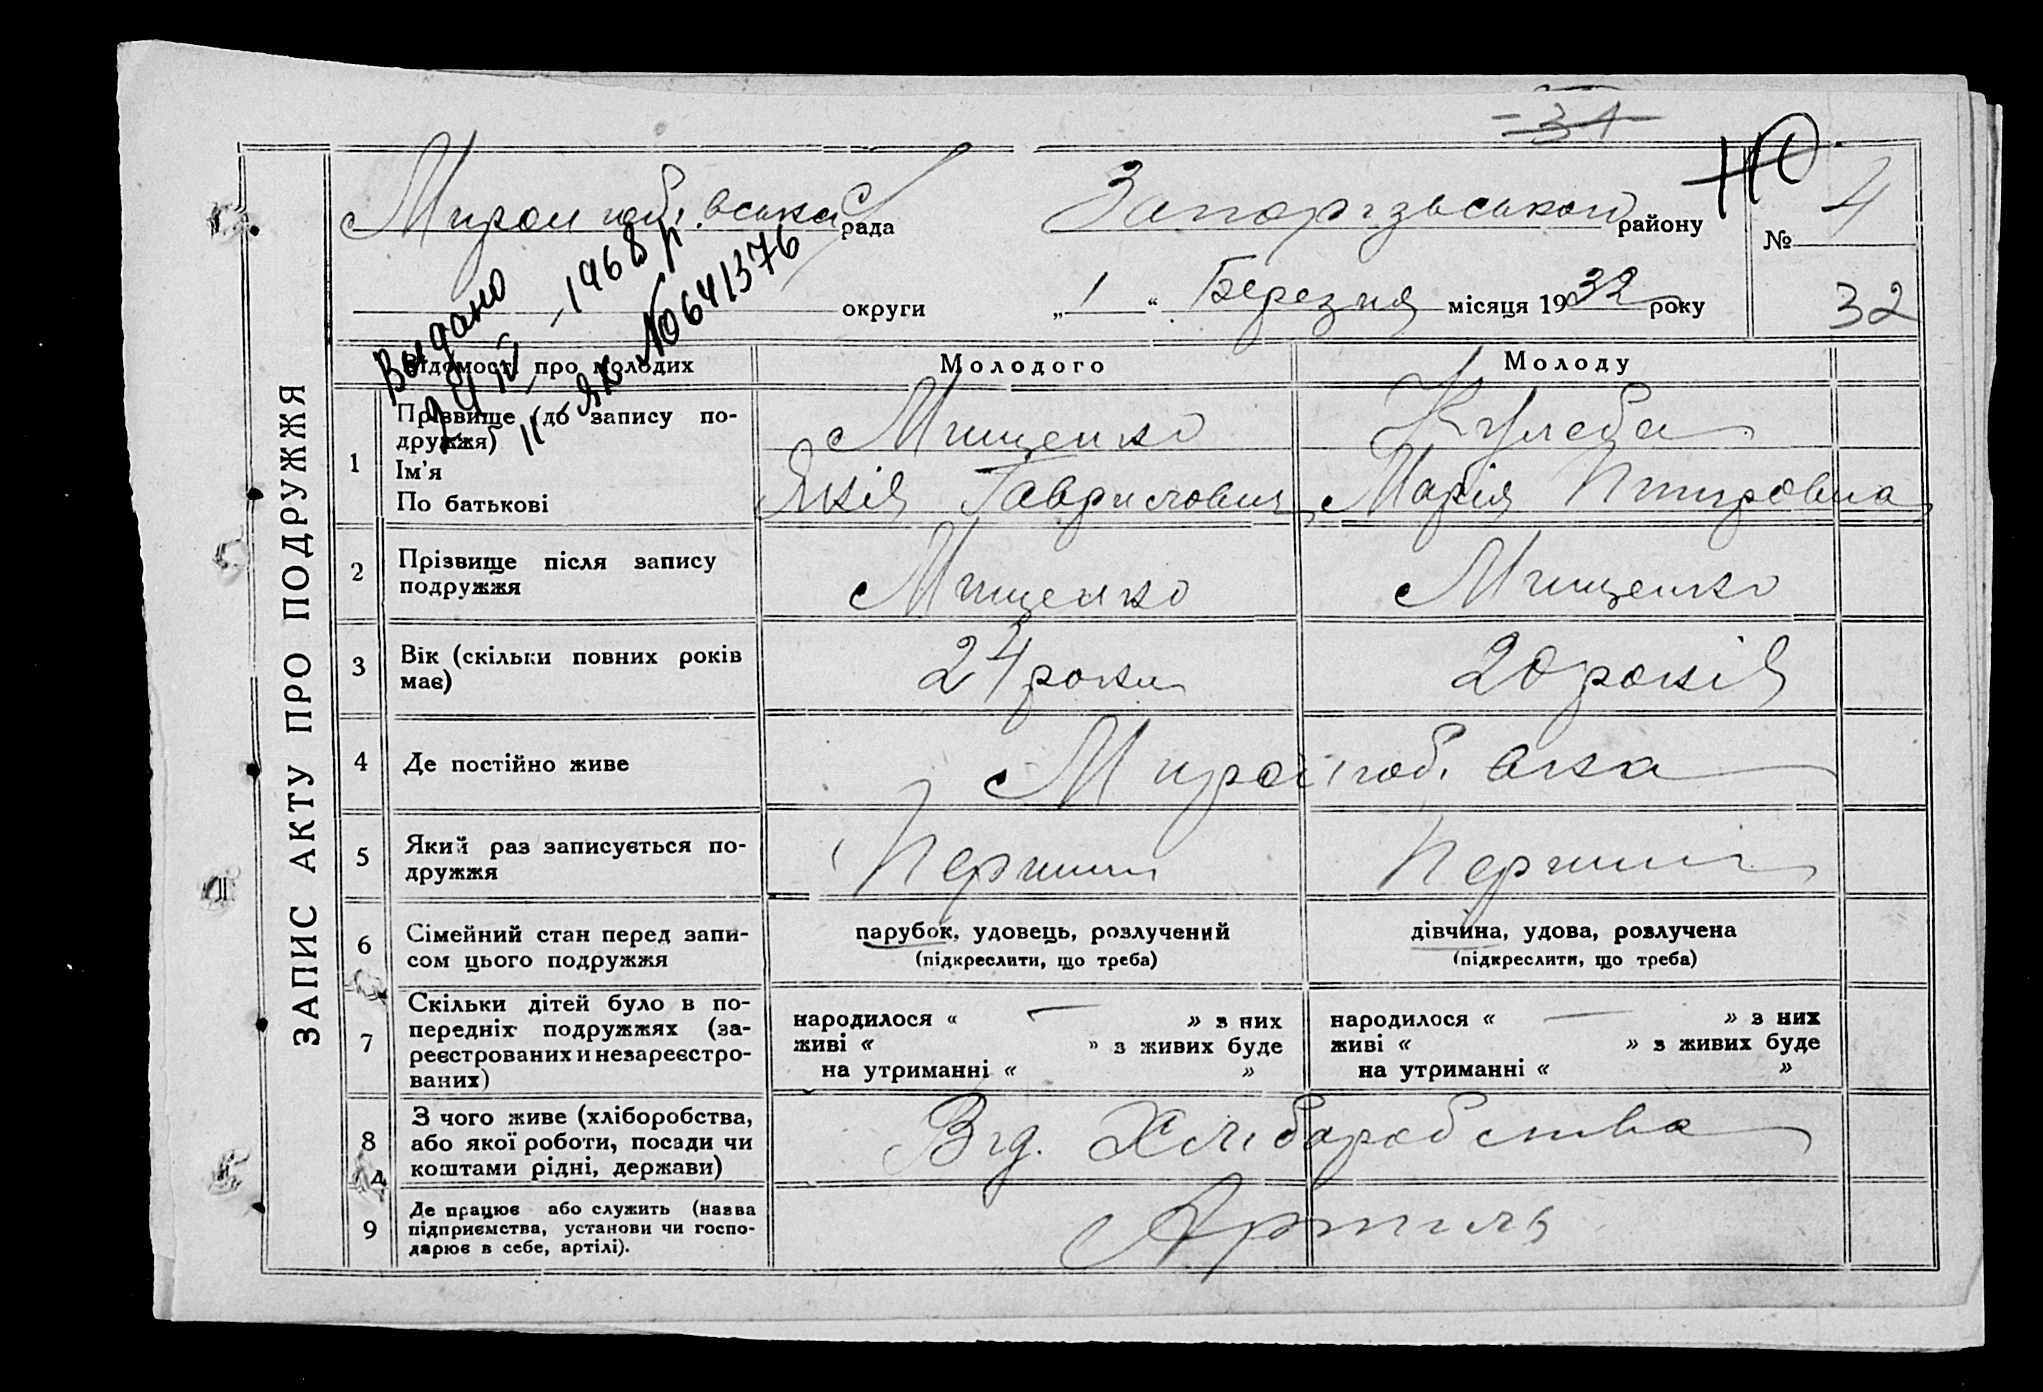 -31-
110
Миролюбівська рада Запорізького району № 4
округи „1“ Березня місяця 1932 року
32
Выдано
1968 р.
II-ЯК №0641376
ЗАПИС АКТУ ПРО ПОДРУЖЖЯ
Відомості про молодих Молодого Молоду
1 Прізвище (до запису по-
дружжя) Мищенко Кулеба
Ім'я
По батькові Яків Гаврилович Марія Петровна
2 Прізвище після запису
подружжя Мищенко Мищенко
3 Вік (скільки повних років
має) 24 роки 20 років
4 Де постійно живе Миролюбівка
5 Який раз записується по-
дружжя Перший Перший
6 Сімейний стан перед запи-
сом цього подружжя
парубок, удовець, розлучений дівчина, удова, розлучена
(підкреслити, що треба) (підкреслити, що треба)
7 Скільки дітей було в по-
передніх подружжях (за-
реєстрованих и незареєстро-
ваних)
народилося « — » з них народилося « — » з них
живі « » з живих буде живі « » з живих буде
на утриманні « » на утриманні « »
8 З чого живе (хліборобства,
або якої роботи, посади чи
коштами рідні, держави) Від. Хліборобства
9 Де працює або служить (назва
підприємства, установи чи госпо-
дарює в себе, артілі). Артиль